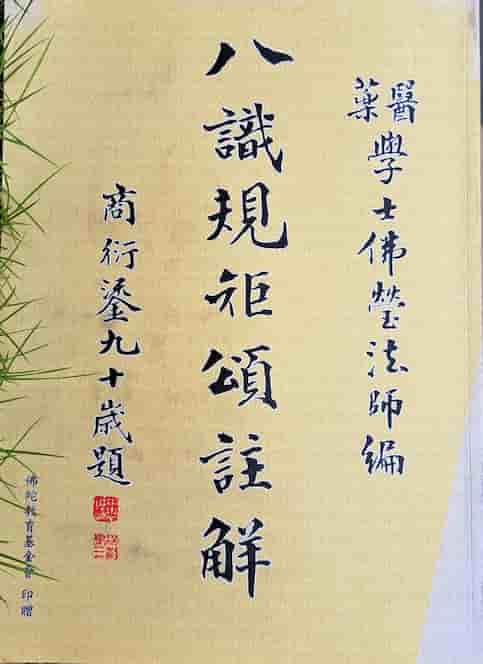 醫藥學士佛瑩法師編
八識規矩頌註解
商衍鎏九十歲題
佛陀教育基金會 印贈